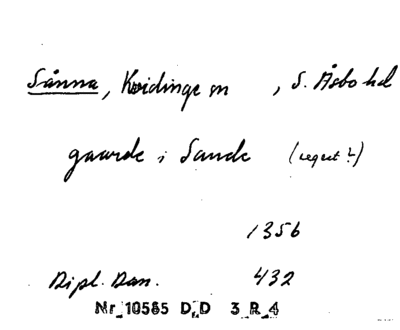 Sånna, Kvidinge sn , S. Åsbo hd
gaarde i Sande (regest?)
1356
Dipl. Dan. 432
Nr 10565 D.D 3 R 4